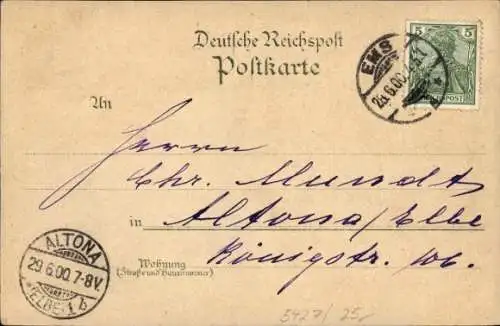 Deutsche Reichspost
Postkarte
5 5
REICHSPOST
EMS
26.6.00.
An
Herrn
Chr. Mundt
in Altona/Elbe
Königstr. 106.
Wohnung
(Straße und Hausnummer)
ALTONA
29.6.00.7-8V.
*(ELBE) 1 b
5427/25,-